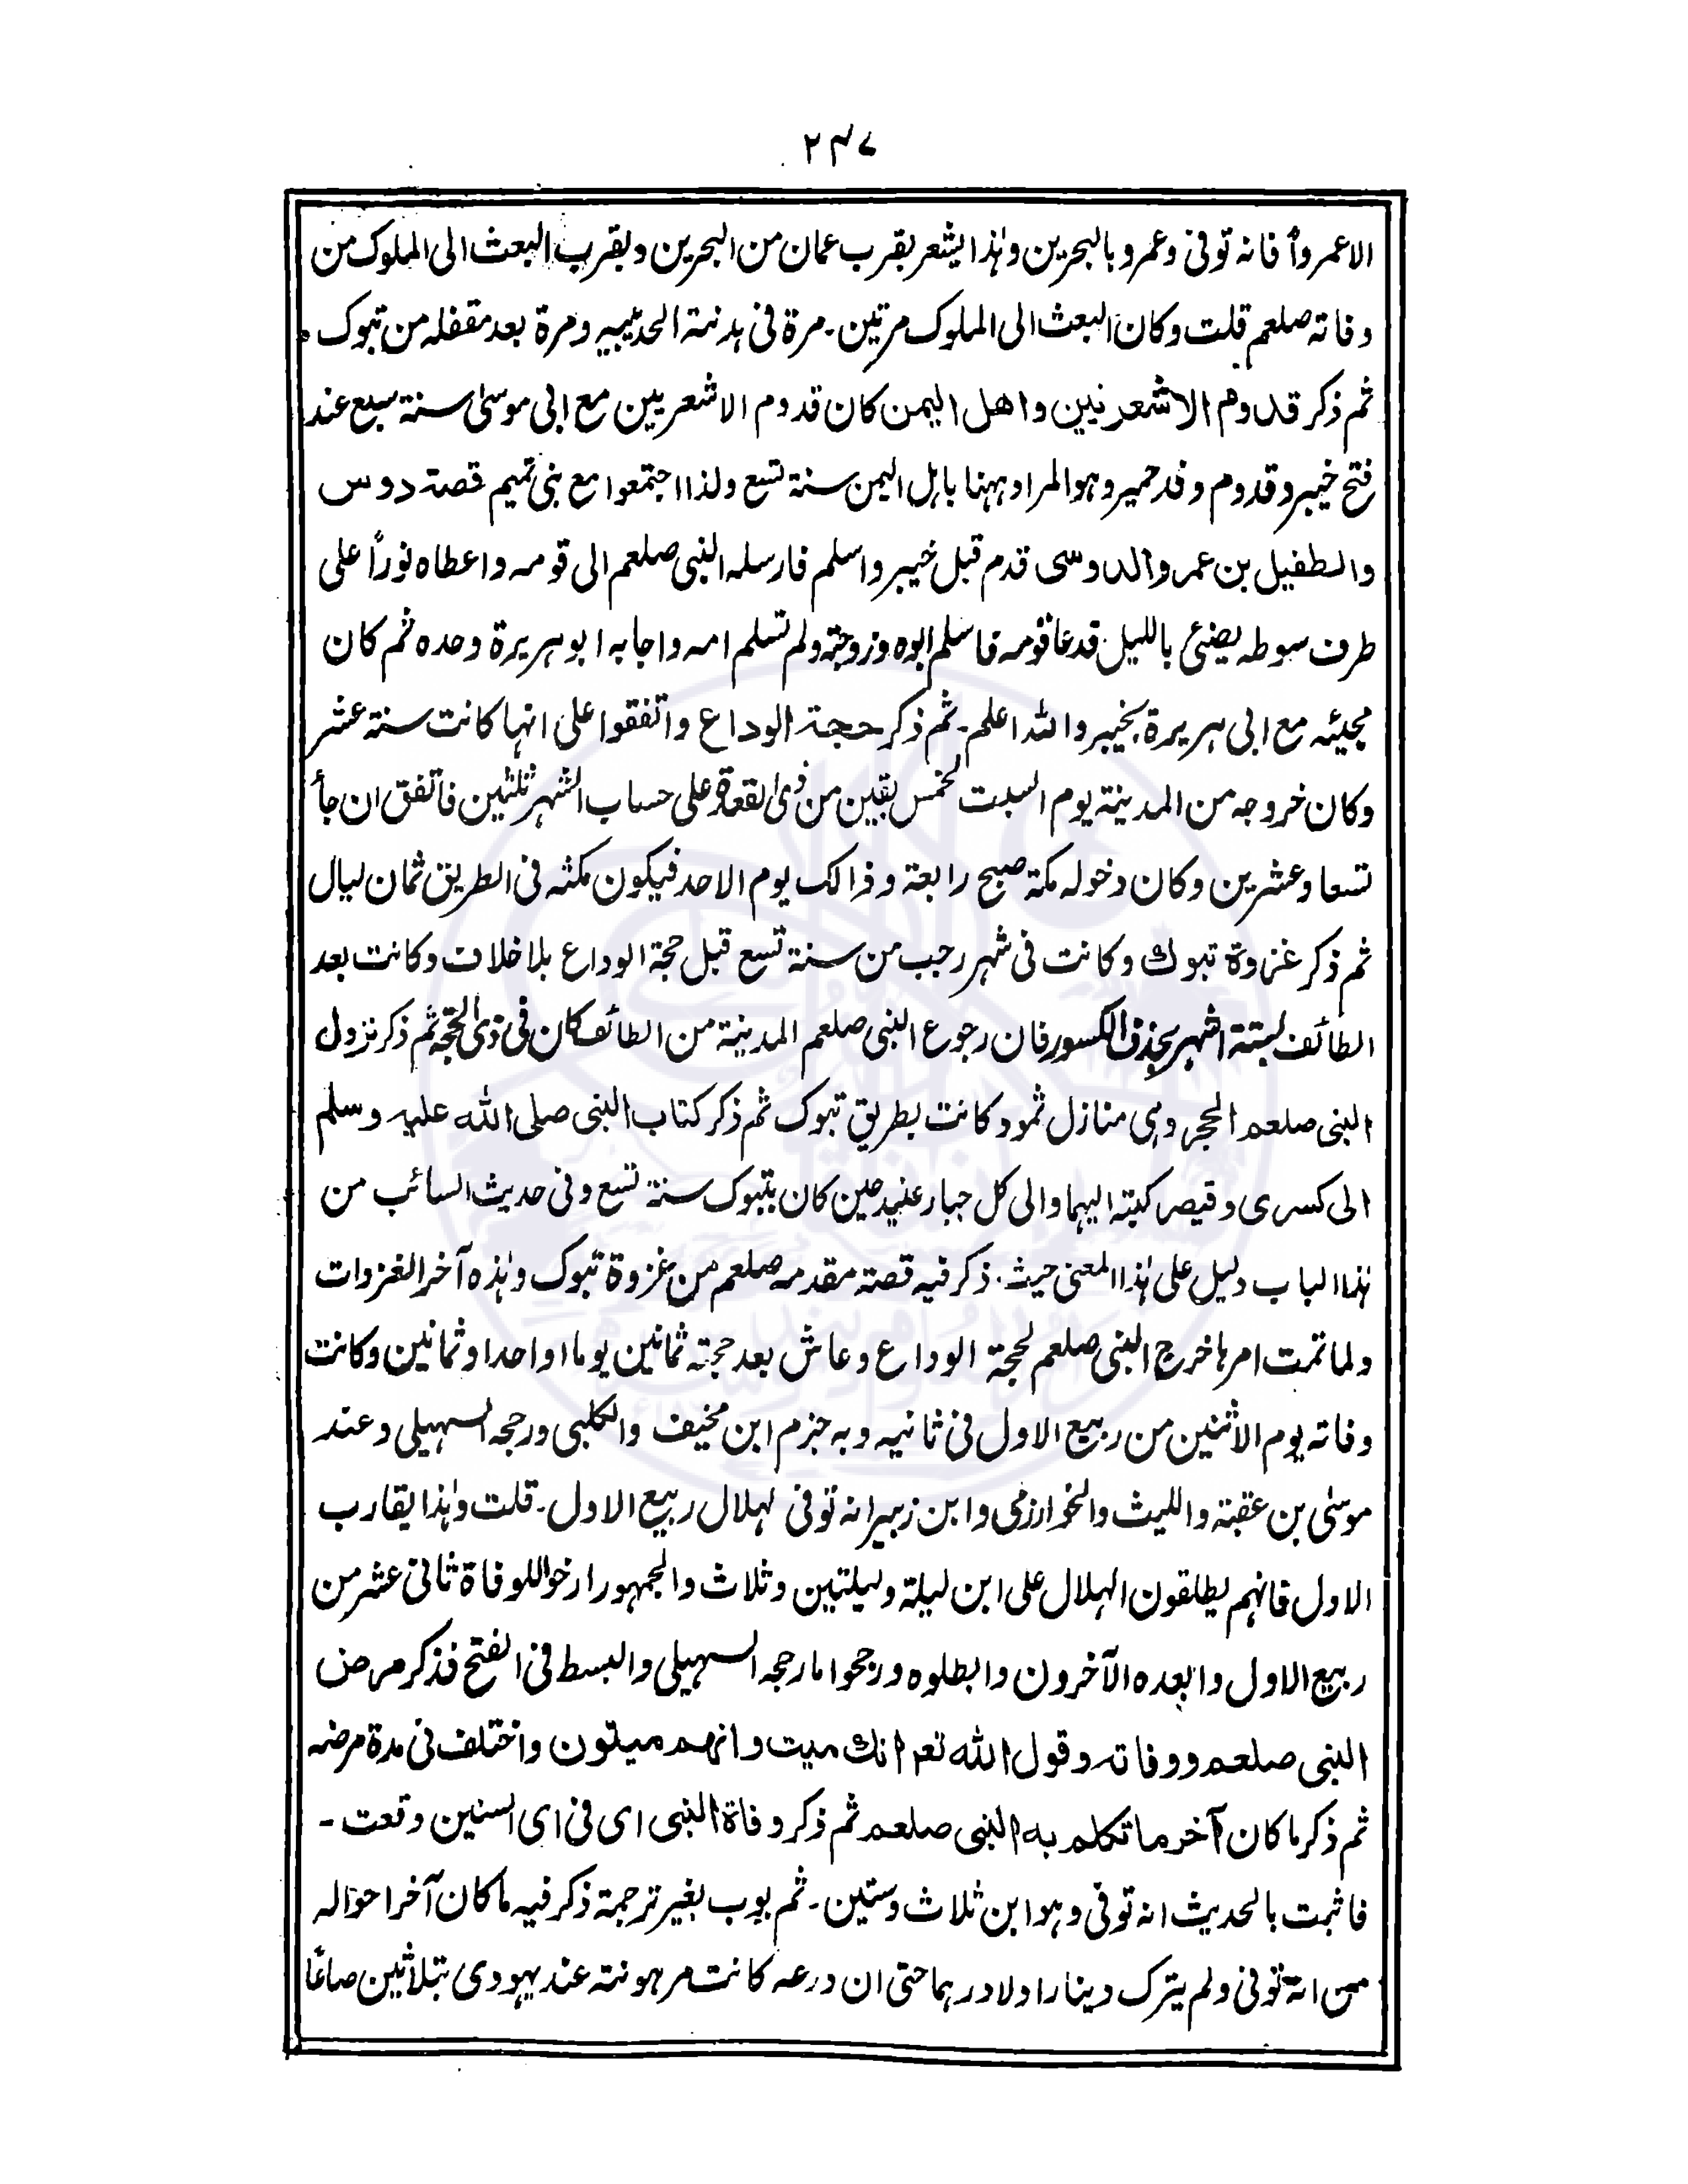 ۲۴۷
الا عمرواً فانه توفی وعمرو بالبحرین وہٰذا یشعر بقرب عمان من البحرین وبقرب البعث الی الملوک من
وفاته صلعم قلت وکان البعث الی الملوک مرتین۔ مرة فی ہدنة الحدیبیه ومرة بعد مقفله من تبوک ۰
ثم ذکر قدوم الاشعریین واهل الیمن کان قدوم الاشعریین مع ابی موسیٰ سنة سبع عند
فتح خیبر وقدوم وفد حمیر وہو المراد ہہنا باہل الیمن سنة تسع ولذا اجتمعوا مع بنی تمیم قصة دوس
والطفیل بن عمرو الدوسی قدم قبل خیبر واسلم فارسله النبی صلعم الی قومه واعطاه نوراً علی
طرف سوطه یضئی باللیل قدعا قومه فاسلم ابوه وزوجته ولم تسلم امه واجابه ابو ہریرة وحده ثم کان
مجیئه مع ابی ہریرة بخیبر والله اعلم۔ ثم ذکر حجة الوداع واتفقوا علی انہا کانت سنة عشر
وکان خروجه من المدینة یوم السبت لخمس بقین من ذی القعدة علی حساب الشہر ثلٰثین فاتفق ان جأ
تسعا وعشرین وکان دخوله مکة صبح رابعة وذالک یوم الاحد فیکون مکثه فی الطریق ثمان لیال
ثم ذکر غزوة تبوک وکانت فی شہر رجب من سنة تسع قبل حجة الوداع بلا خلاف وکانت بعد
الطائف لستة اشہر بحذف الکسور فان رجوع النبی صلعم المدینة من الطائف کان فی ذی الحجة ثم ذکر نزول
النبی صلعم الحجر وہی منازل ثمود کانت بطریق تبوک ثم ذکر کتاب النبی صلی الله علیه وسلم
الی کسری وقیصر کتبته الیہما والی کل جبار عنید حین کان بتبوک سنة تسع وفی حدیث السائب من
ہٰذا الباب دلیل علی ہٰذا المعنی حیث ذکر فیه قصة مقدمه صلعم من غزوة تبوک وہٰذه آخر الغزوات
ولما تمت امرہا خرج النبی صلعم لحجة الوداع وعاش بعد حجته ثمانین یوما او احدا وثمانین وکانت
وفاته یوم الاثنین من ربیع الاول فی ثانیه وبه جزم ابن مخیف والکلبی ورجحه السہیلی وعند
موسیٰ بن عقبة واللیث والخوارزمی وابن زبیر انه توفی لہلال ربیع الاول۔ قلت وہٰذا یقارب
الاول فانہم یطلقون الہلال علی ابن لیلة ولیلتین وثلاث والجمہور ارخوا للوفاة ثانی عشر من
ربیع الاول وابعده الآخرون وابطلوه ورجحوا ما رجحه السہیلی والبسط فی الفتح فذکر مرض
النبی صلعم ووفاته وقول الله تعہ انك میت وانهم میتون واختلف فی مدة مرضه
ثم ذکر ما کان آخر ما تکلم به النبی صلعم ثم ذکر وفاة النبی ای فی ای السنین وقعت ۔
فاثبت بالحدیث انه توفی وہو ابن ثلاث وستین۔ ثم بوب بغیر ترجمة ذکر فیه ما کان آخر احواله
من انه توفی ولم یترک دینارا ولا درہما حتی ان درعه کانت مرہونة عند یہودی بثلاثین صاعًا